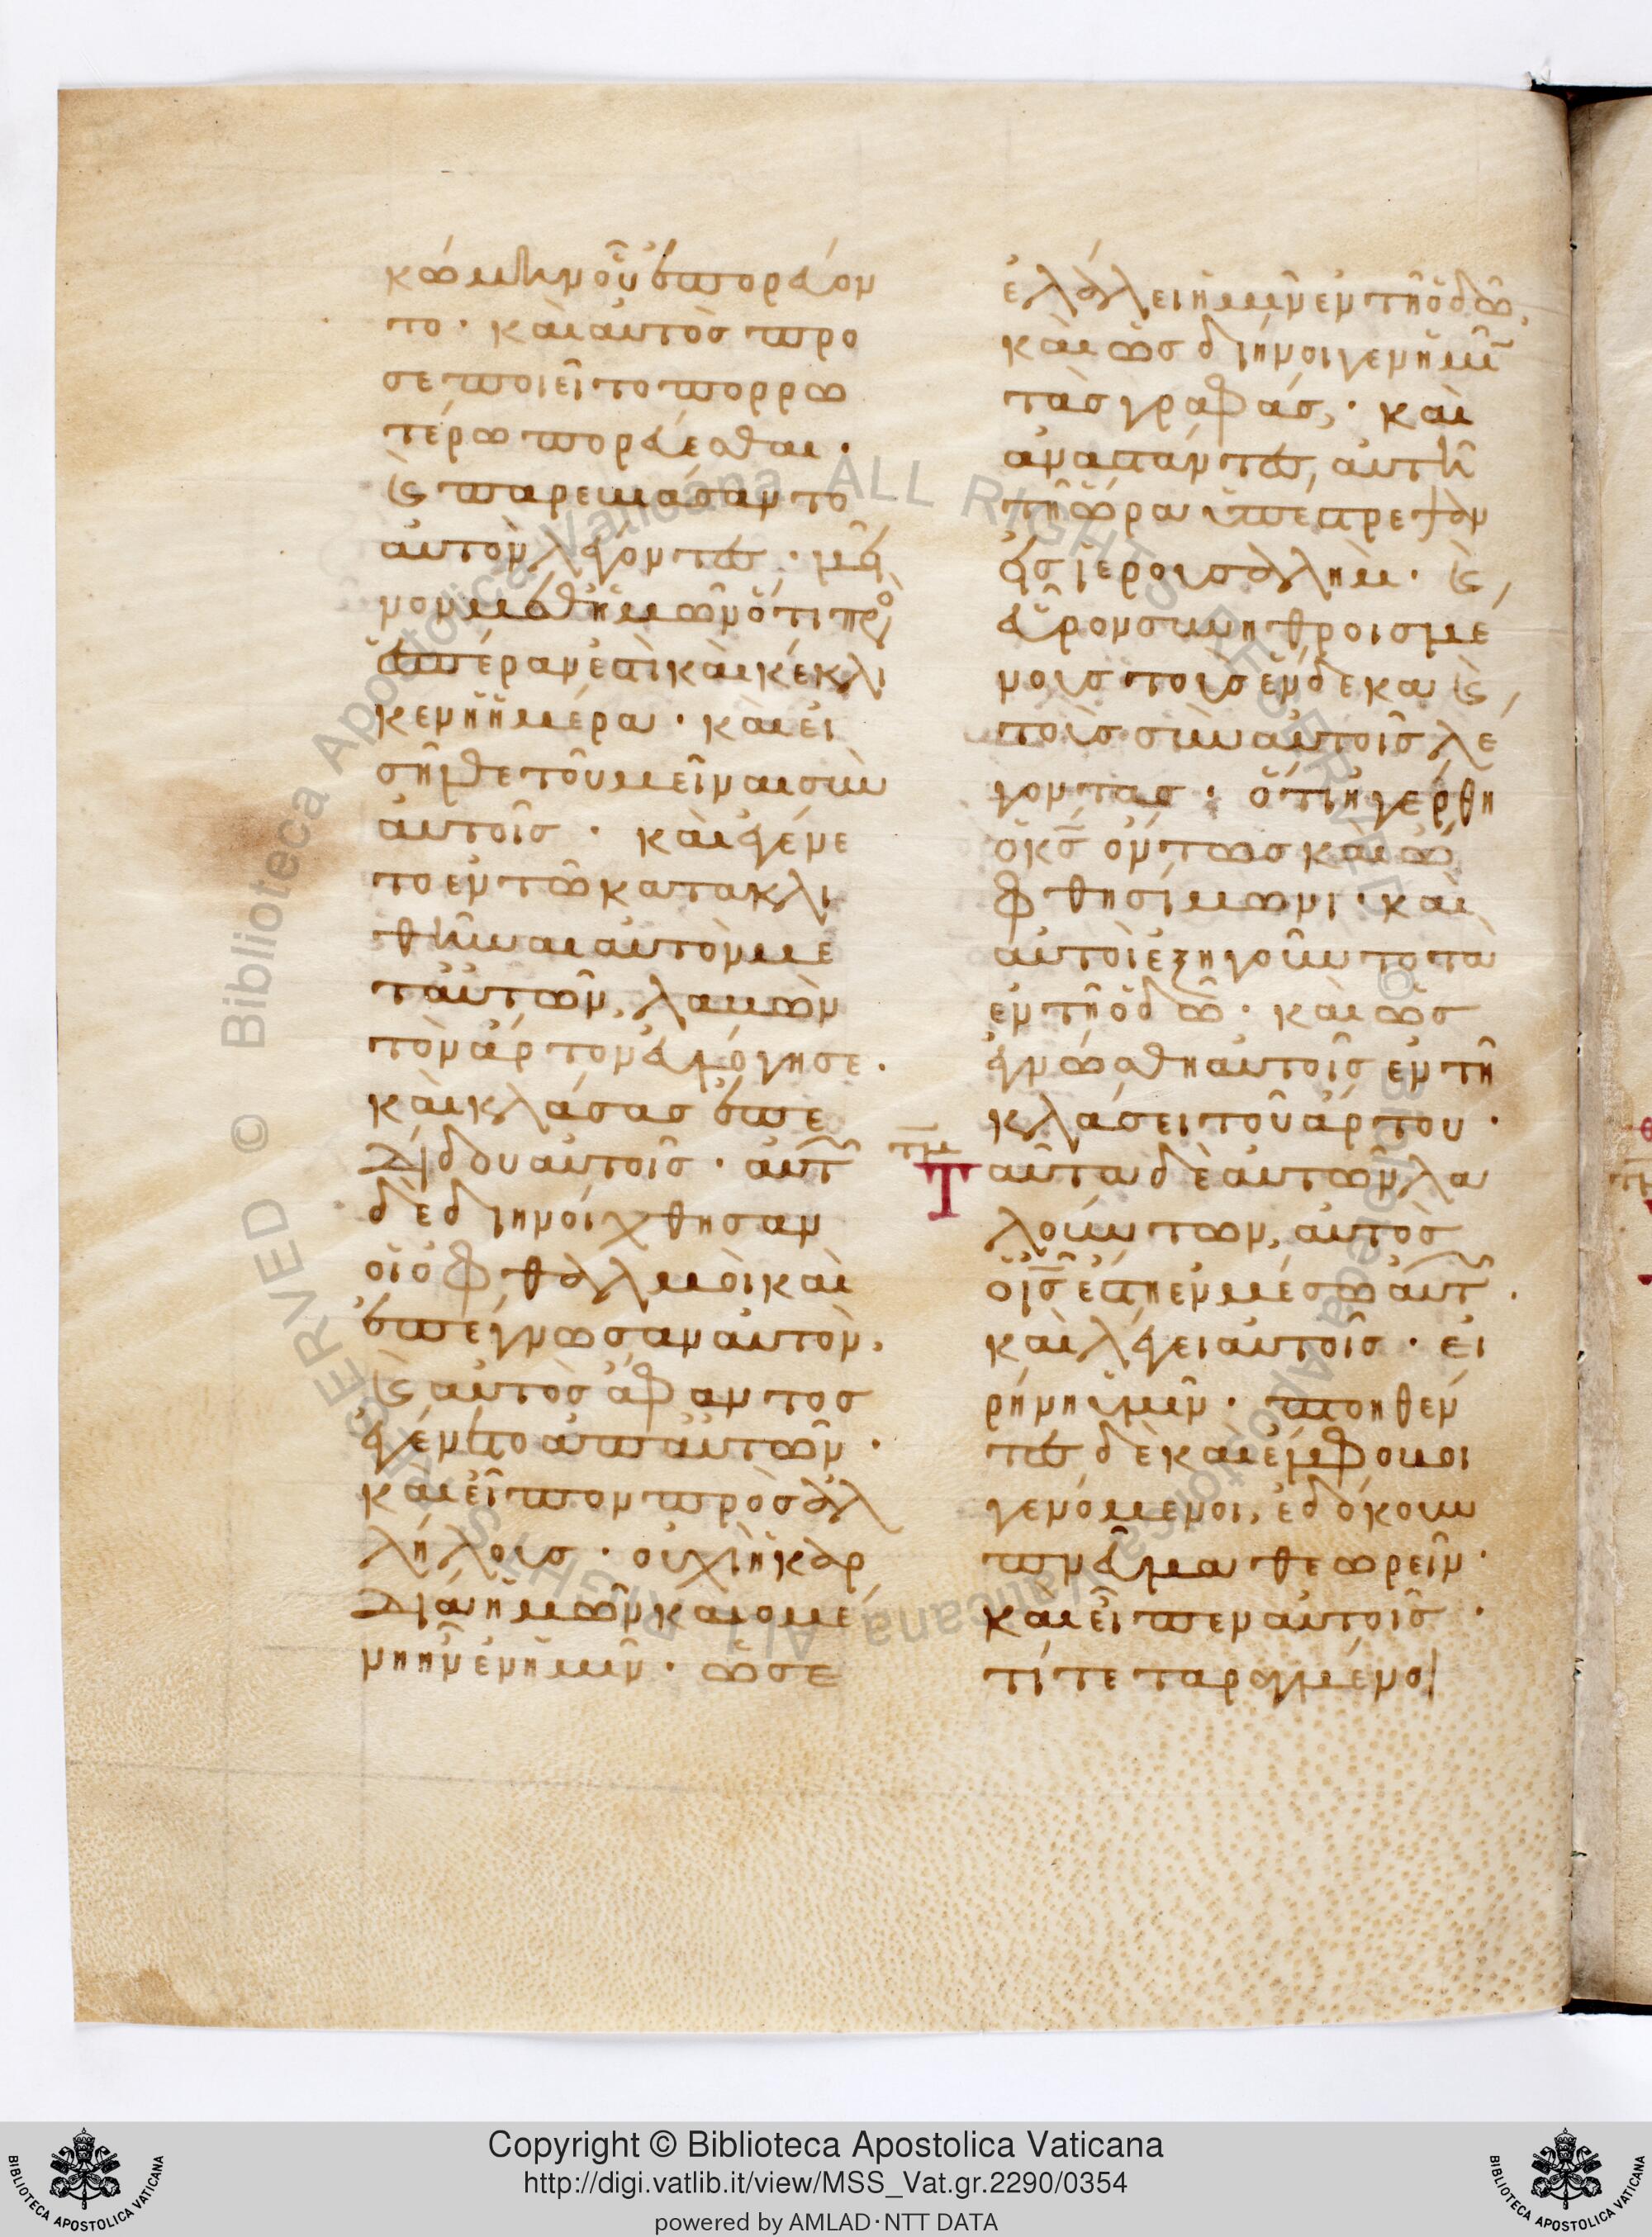 κώμην οὗ ἐπορεύον
το · καὶ αὐτὸς προ
σεποιεῖτο πορρω
τέρω πορεύεσθαι ·
ϗ παρεβιάσαντο
αὐτὸν λέγοντες · μεῖ
νον μεθ ἡμῶν ὅτι πρὸ
ἑσπέραν ἐστὶ καὶ κέκλι
κεν ἡ ἡμέρα · καὶ εἰ
σῆλθε τοῦ μεῖναι σὺν
αὐτοῖς · καὶ ἐγένε
το ἐν τῶ κατακλι
θῆναι αὐτὸν με
τ αὐτῶν, λαβὼν
τὸν ἄρτον εὐλόγησε ·
καὶ κλάσας ἐπε
δίδου αὐτοῖς · αὐτ
δὲ διηνοίχθησαν
οἱ ὀφθαλμοὶ καὶ
ἐπέγνωσαν αὐτὸν,
ϗ αὐτὸς ἄφαντος
ἐγένετο ἀπ αὐτῶν ·
καὶ εἶπον πρὸς ἀλ
λήλους · οὐχὶ ἡ καρ
δία ἡμῶν καιομέ
νη ἦν ἐν ἡμῖν · ὡς ε
ἐλάλει ἡμῖν ἐν τῆ ὁδῶ,
καὶ ὡς διήνοιγεν ἡμῖ
τὰς γραφάς, · καὶ
ἀναστάντες, αὐτῆ
τῆ ὥρα ὑπέστρεψαν
εἰς ἱερουσαλήμ · ϗ
εὗρον συνηθροισμέ
νους τοὺς ἕνδεκα ϗ
τοὺς σὺν αὐτοῖς λέ
γοντας · ὅτι ἠγέρθη
ὁ κς ὄντως καὶ ὤ
φθη σίμωνι · καὶ
αὐτοὶ ἐξηγοῦντο τὰ
ἐν τῆ ὁδῶ · καὶ ὡς
ἐγνώσθη αὐτοῖς ἐν τῆ
κλάσει τοῦ ἄρτου ·
τμ
Ταῦτα δὲ αὐτῶν λα
λούντων, αὐτὸς
ὁ ις ἔστη ἐν μέσω αὐτ ·
καὶ λέγει αὐτοῖς · εἰ
ρήνη ὑμῖν · πτοηθέν
τες δὲ καὶ ἔμφοβοι
γενόμενοι, ἐδόκουν
πνεῦμα θεωρεῖν ·
καὶ εἶπεν αὐτοῖς ·
τί τεταραγμένοι
Copyright © Biblioteca Apostolica Vaticana
http://digi.vatlib.it/view/MSS_Vat.gr.2290/0354
powered by AMLAD·NTT DATA
BIBLIOTECA APOSTOLICA VATICANA
BIBLIOTECA APOSTOLICA VATICANA
© Biblioteca Apostolica Vaticana ALL RIGHTS RESERVED
© Biblioteca Apostolica Vaticana ALL RIGHTS RESERVED